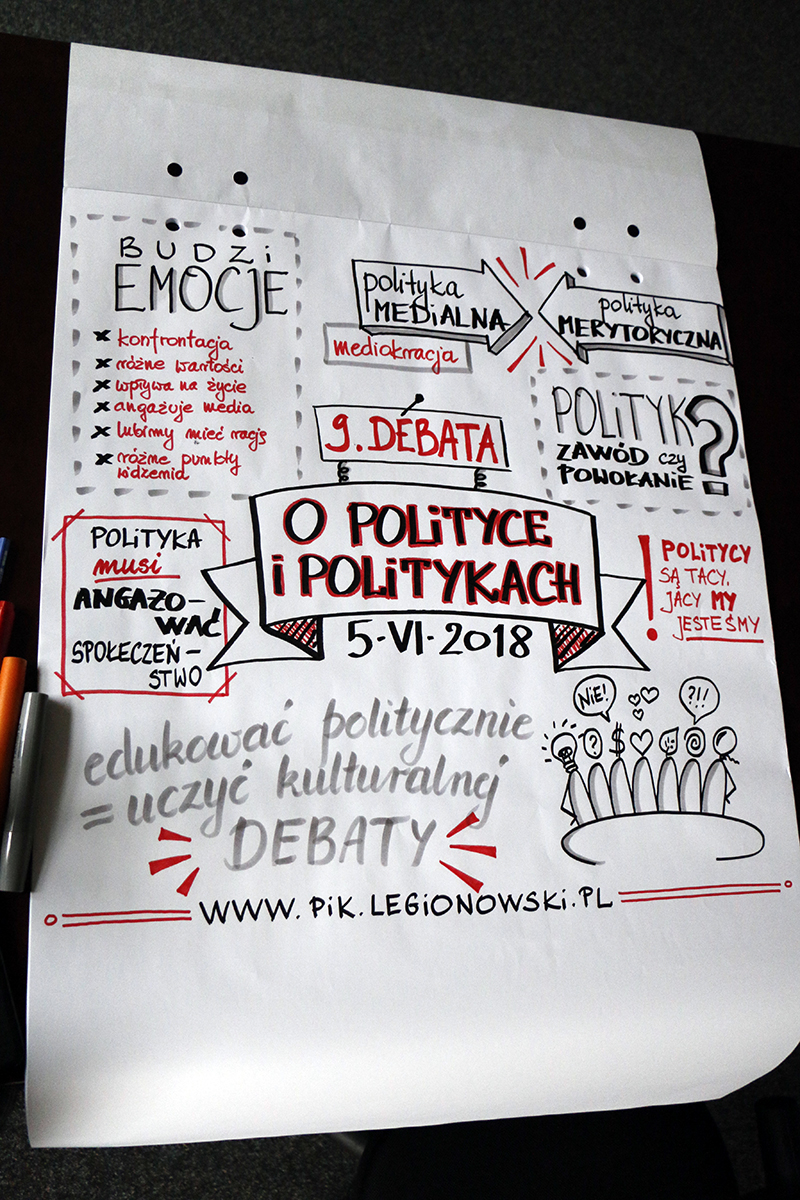 BUDZi
EMOCJE
× konfrontacja
× różne wartości
× wpływa na życie
× angażuje media
× lubimy mieć rację
× różne punkty
widzenia
polityka
MEDiALNA
mediokracja
polityka
MERYTORYCZNA
POLiTYK?
ZAWÓD czy
POWOŁANIE
9. DEBATA
O POLiTYCE
i POLiTYKACH
5·VI·2018
POLiTYKA
musi
ANGAŻO-
WAĆ
SPOŁECZEŃ-
STWO
! POLiTYCY
SĄ TACY,
JACY MY
JESTEŚMY
NiE!
?!/
? $
edukować politycznie
= uczyć kulturalnej
DEBATY
WWW.PiK.LEGiONOWSKi.PL